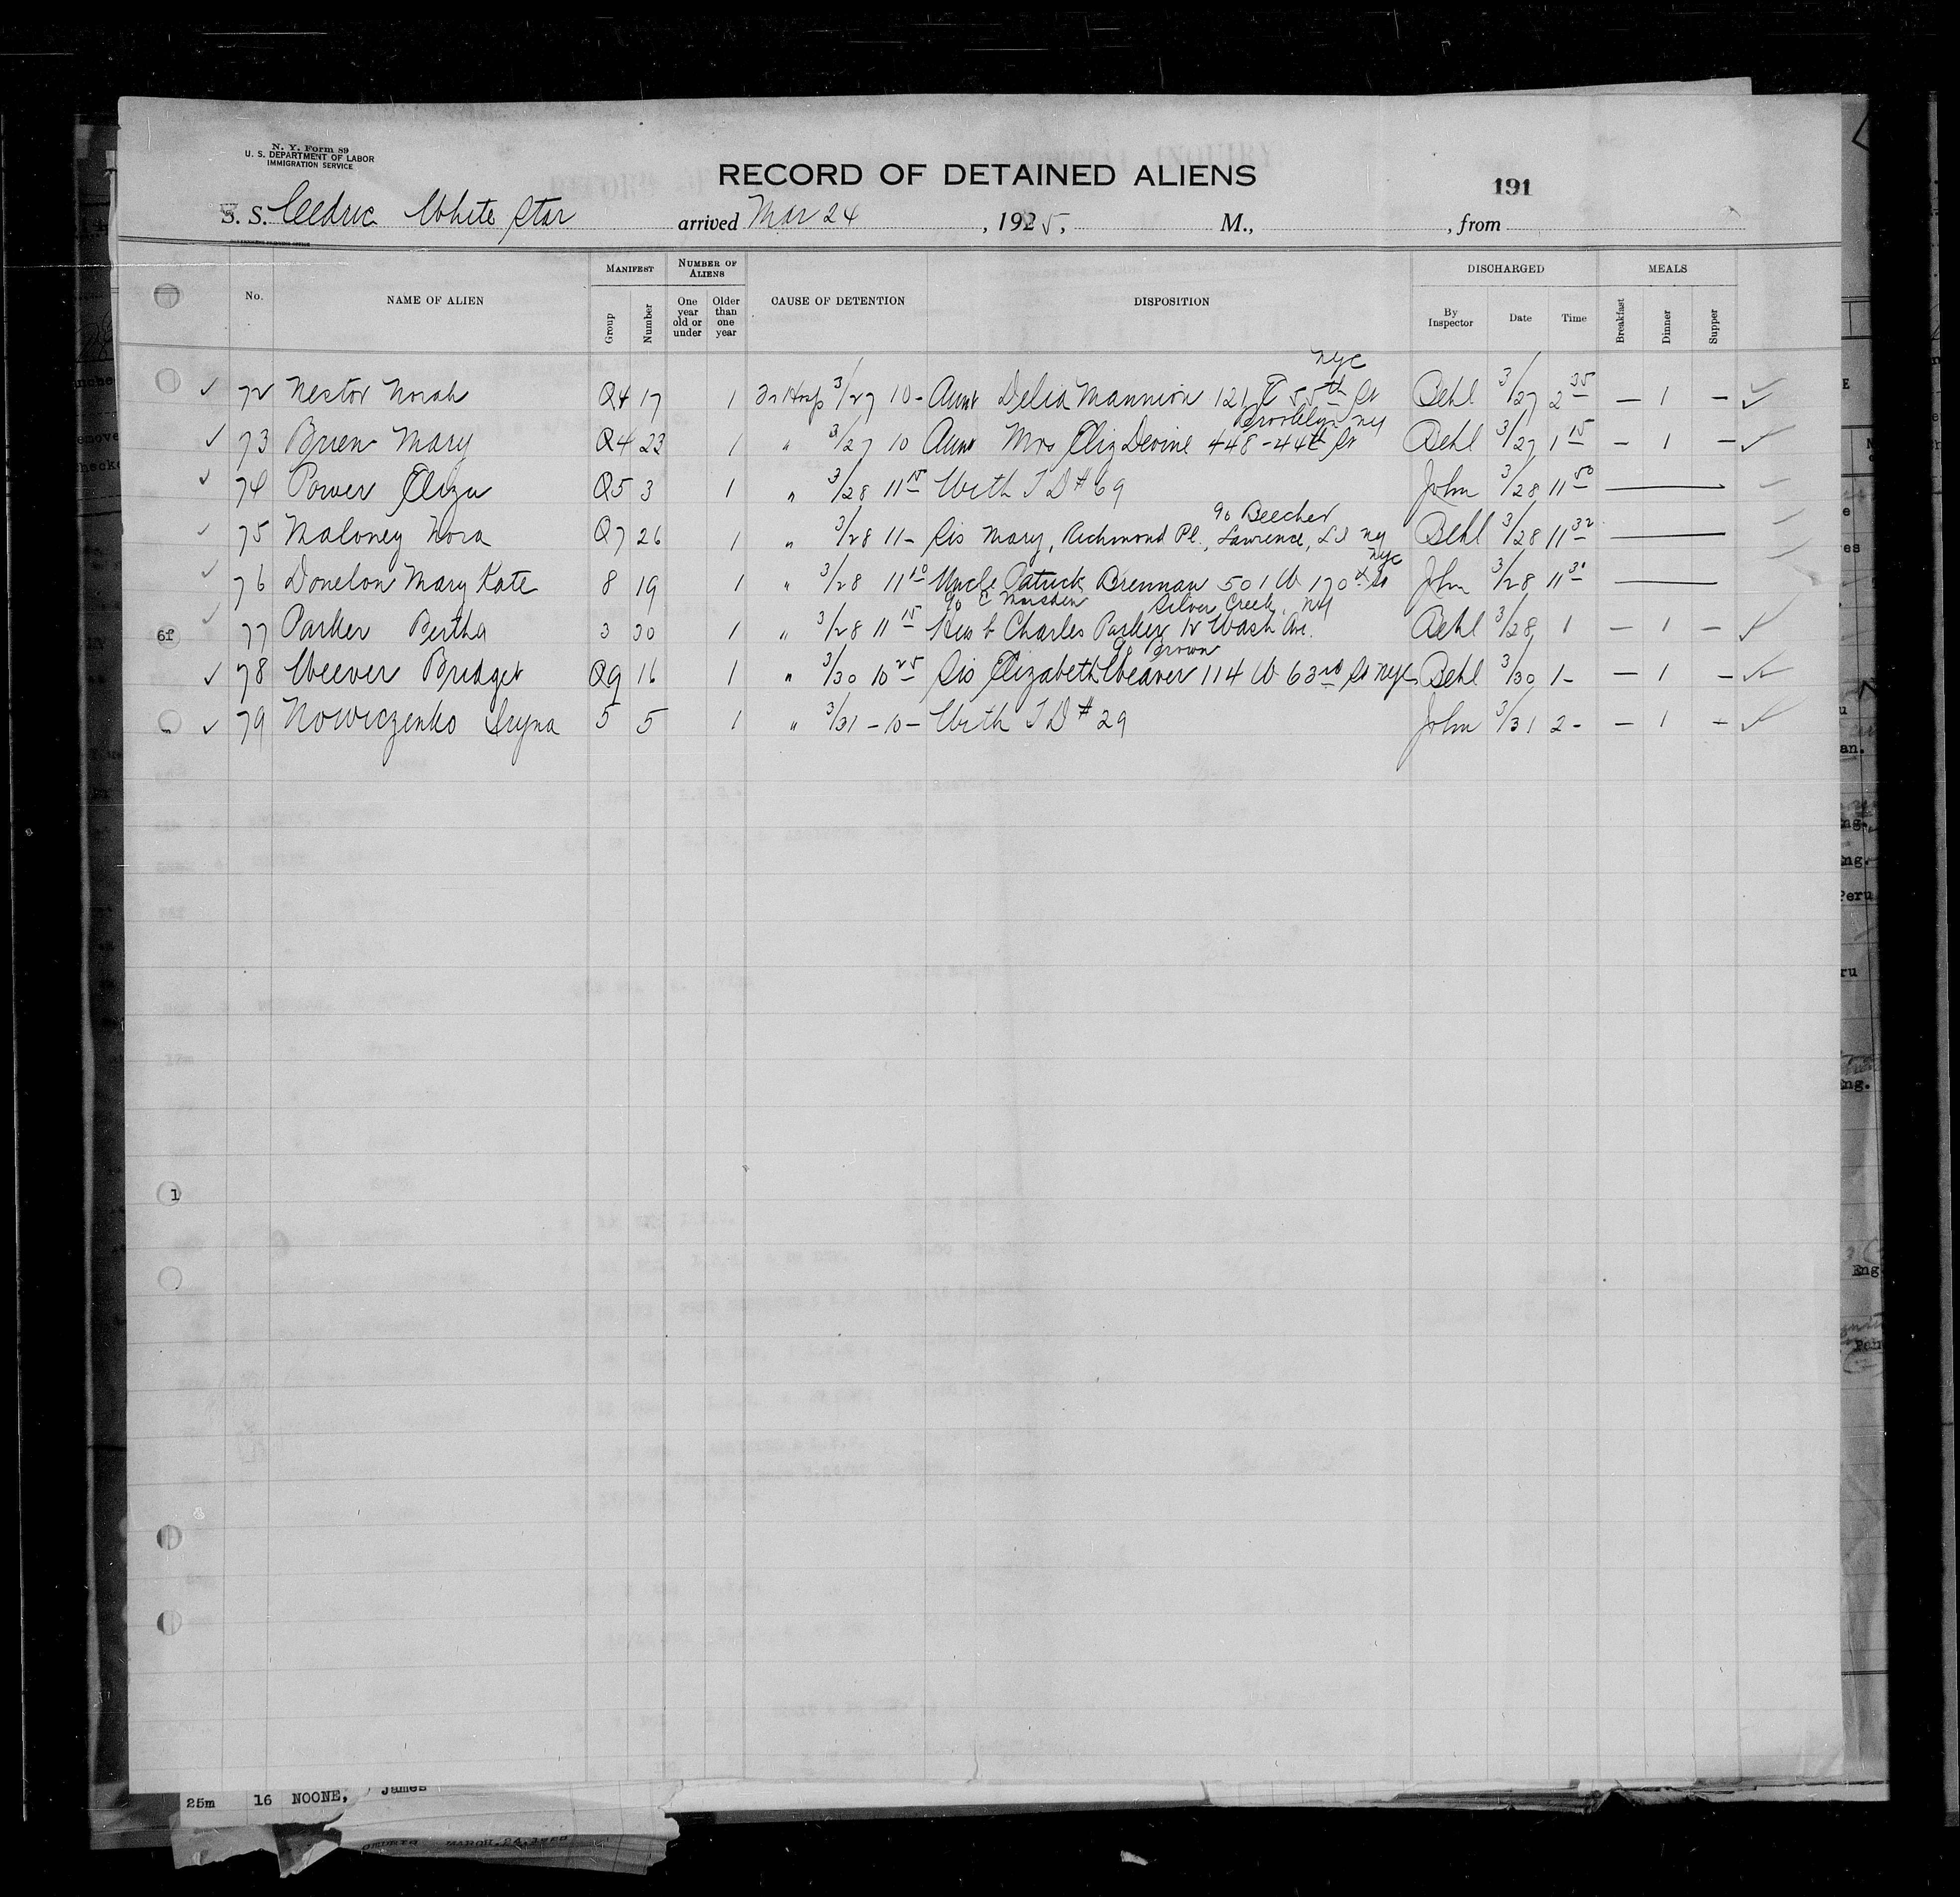 N. Y. Form 89
U. S. DEPARTMENT OF LABOR
IMMIGRATION SERVICE
RECORD OF DETAINED ALIENS
191
S. S. Cedric White Star arrived Mar 24, 1925, M., from
No. NAME OF ALIEN MANIFEST Group Number NUMBER OF ALIENS One year old or under Older than one year CAUSE OF DETENTION DISPOSITION DISCHARGED By Inspector Date Time MEALS Breakfast Dinner Supper
nyc
✓ 72 Nestor Norah Q4 17 1 In Hosp 3/27 10- Aunt Delia Mannion 121 E 55th St Behl 3/27 2 35 — 1 — ✓
Brooklyn ny
✓ 73 Brien Mary Q4 23 1 " 3/27 10 Aunt Mrs Eliz Devine 448-44th St Behl 3/27 1 15 — 1 — ✓
✓ 74 Power Eliza Q5 3 1 " 3/28 11 15 With T D # 69 John 3/28 11 50 — ✓
% Beecher
✓ 75 Maloney Nora Q7 26 1 " 3/28 11- Sis Mary, Richmond Pl., Lawrence, L I ny Behl 3/28 11 32 — ✓
nyc
✓ 76 Donelon Mary Kate 8 19 1 " 3/28 11 10 Uncle Patrick Brennan 501 W 170th St John 3/28 11 30 — ✓
% E Marsden Silver Creek, ny
6f ✓ 77 Parker Bertha 3 30 1 " 3/28 11 15 Hus b Charles Parker 12 Wash Ave. Behl 3/28 1 — 1 — ✓
% Brown
✓ 78 Weever Bridget Q9 16 1 " 3/30 10 25 Sis Elizabeth Weaver 114 W 63rd St nyc Behl 3/30 1- — 1 — ✓
✓ 79 Nowiczenko Iryna 5 5 1 " 3/31 -10- With T D # 29 John 3/31 2- — 1 — ✓
1
25m 16 NOONE, James
MARCH.24.1925